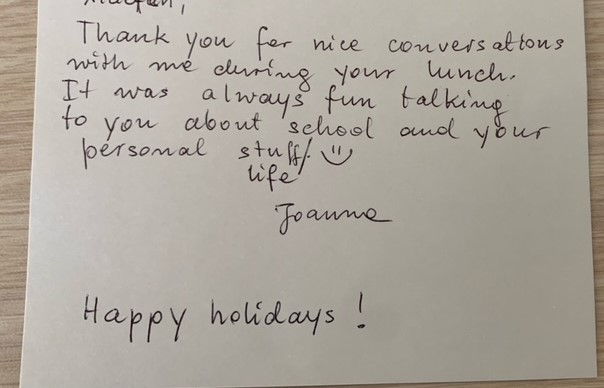 Thank you for nice conversations
with me during your lunch.
It was always fun talking
to you about school and your
personal stuff/
life
Joanna
Happy holidays!